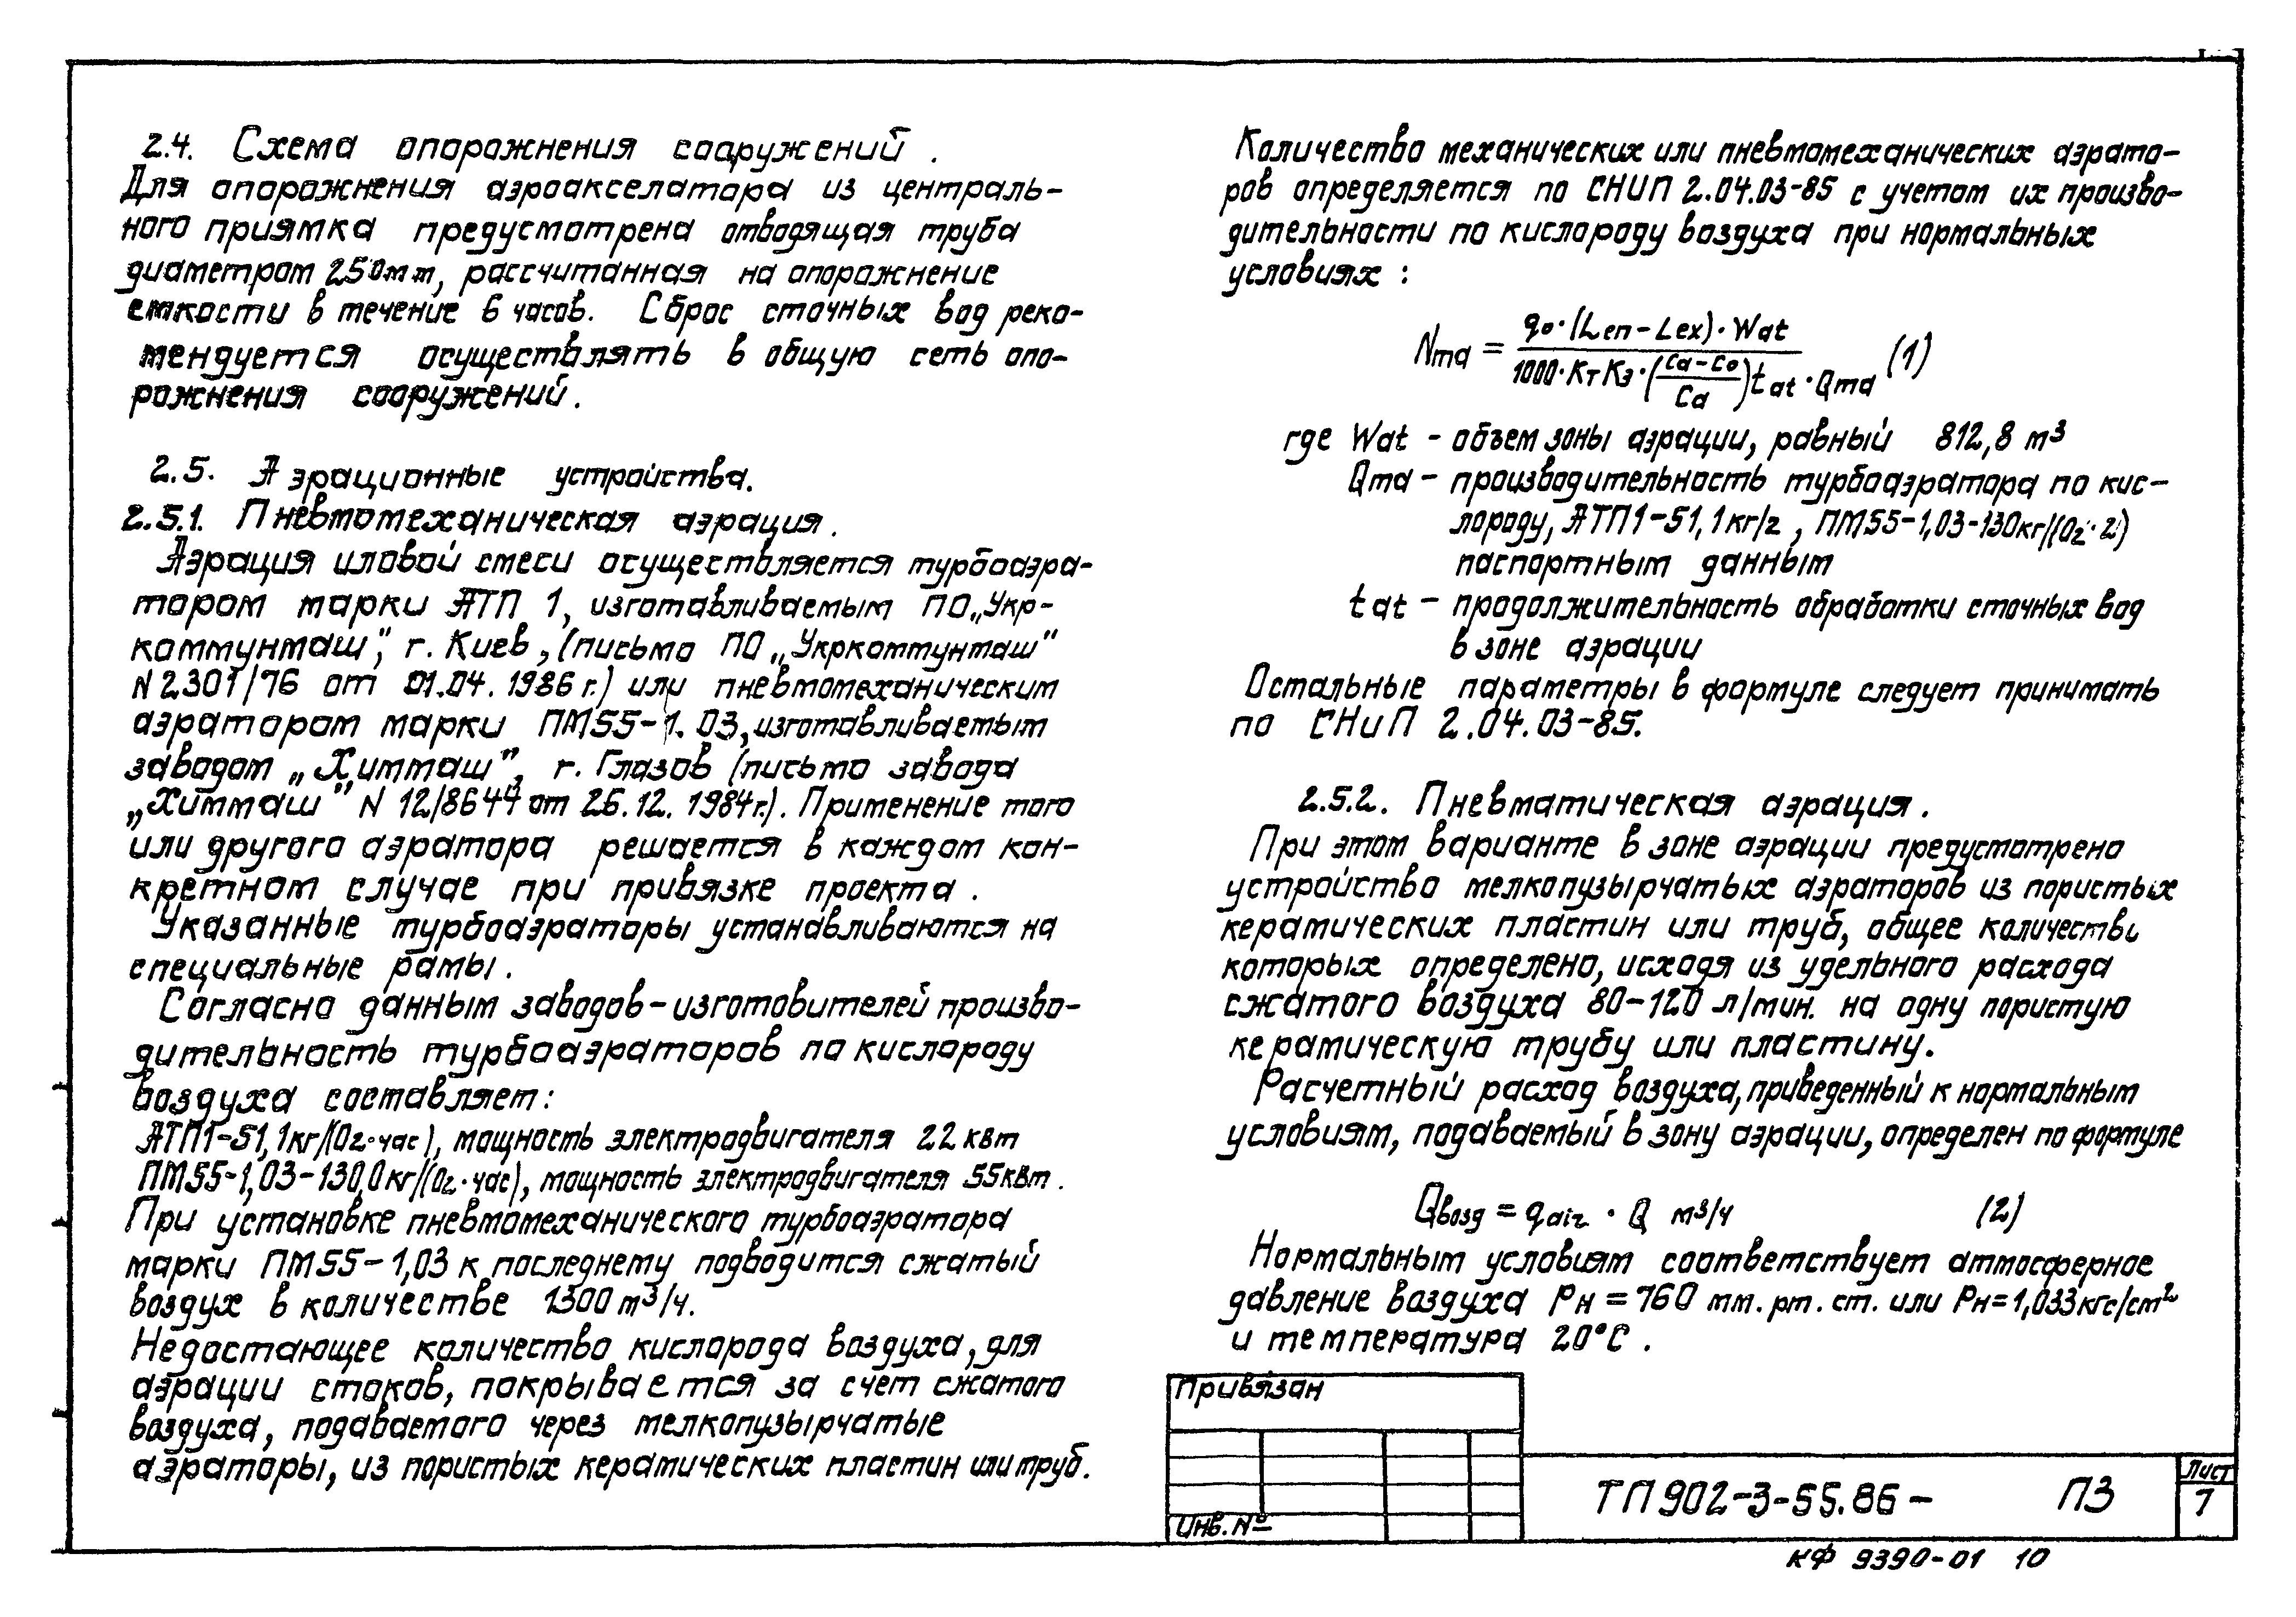 2.4. Схема опорожнения сооружений.
Для опорожнения аэроакселатора из централь-
ного приямка предусмотрена отводящая труба
диаметром 250мм, рассчитанная на опорожнение
емкости в течение 6 часов. Сброс сточных вод реко-
мендуется осуществлять в общую сеть опо-
рожнения сооружений.
2.5. Аэрационные устройства.
2.5.1. Пневмомеханическая аэрация.
Аэрация иловой смеси осуществляется турбоаэра-
тором марки АТП 1, изготавливаемым ПО „Укр-
коммунмаш", г. Киев, (письмо ПО „Укркоммунмаш"
N 2301/76 от 01.04. 1986 г.) или пневмомеханическим
аэратором марки ПМ55-1.03, изготавливаемым
заводом „Химмаш", г. Глазов (письмо завода
„Химмаш" N 12/8644 от 26.12. 1984г.). Применение того
или другого аэратора решается в каждом кон-
кретном случае при привязке проекта.
Указанные турбоаэраторы устанавливаются на
специальные рамы.
Согласно данным заводов-изготовителей произво-
дительность турбоаэраторов по кислороду
воздуха составляет:
АТП1-51,1кг/(О2·час), мощность электродвигателя 22 квт
ПМ55-1,03-130,0кг/(О2·час), мощность электродвигателя 55квт.
При установке пневмомеханического турбоаэратора
марки ПМ55-1,03 к последнему подводится сжатый
воздух в количестве 1300 м³/ч.
Недостающее количество кислорода воздуха, для
аэрации стоков, покрывается за счет сжатого
воздуха, подаваемого через мелкопузырчатые
аэраторы, из пористых керамических пластин или труб.
Количество механических или пневмомеханических аэрато-
ров определяется по СНИП 2.04.03-85 с учетом их произво-
дительности по кислороду воздуха при нормальных
условиях:
Nma = qo·(Len-Lex)·Wat / 1000·Kт Kз·((Ca-Co)/Ca) tat·Qma (1)
где Wat - объем зоны аэрации, равный 812,8 м³
Qma - производительность турбоаэратора по кис-
лороду, АТП1-51,1кг/г, ПМ55-1,03-130кг/(О2·г)
паспортным данным
tat - продолжительность обработки сточных вод
в зоне аэрации
Остальные параметры в формуле следует принимать
по СНиП 2.04.03-85.
2.5.2. Пневматическая аэрация.
При этом варианте в зоне аэрации предусмотрено
устройство мелкопузырчатых аэраторов из пористых
керамических пластин или труб, общее количество
которых определено, исходя из удельного расхода
сжатого воздуха 80-120 л/мин. на одну пористую
керамическую трубу или пластину.
Расчетный расход воздуха, приведенный к нормальным
условиям, подаваемый в зону аэрации, определен по формуле
Qвозд = qair · Q м³/ч (2)
Нормальным условиям соответствует атмосферное
давление воздуха Рн = 760 мм. рт. ст. или Рн=1,033кгс/см²
и температура 20°С.
Привязан
Инв. №
ТП 902-3-55.86- ПЗ
Лист
7
КФ 9390-01 10